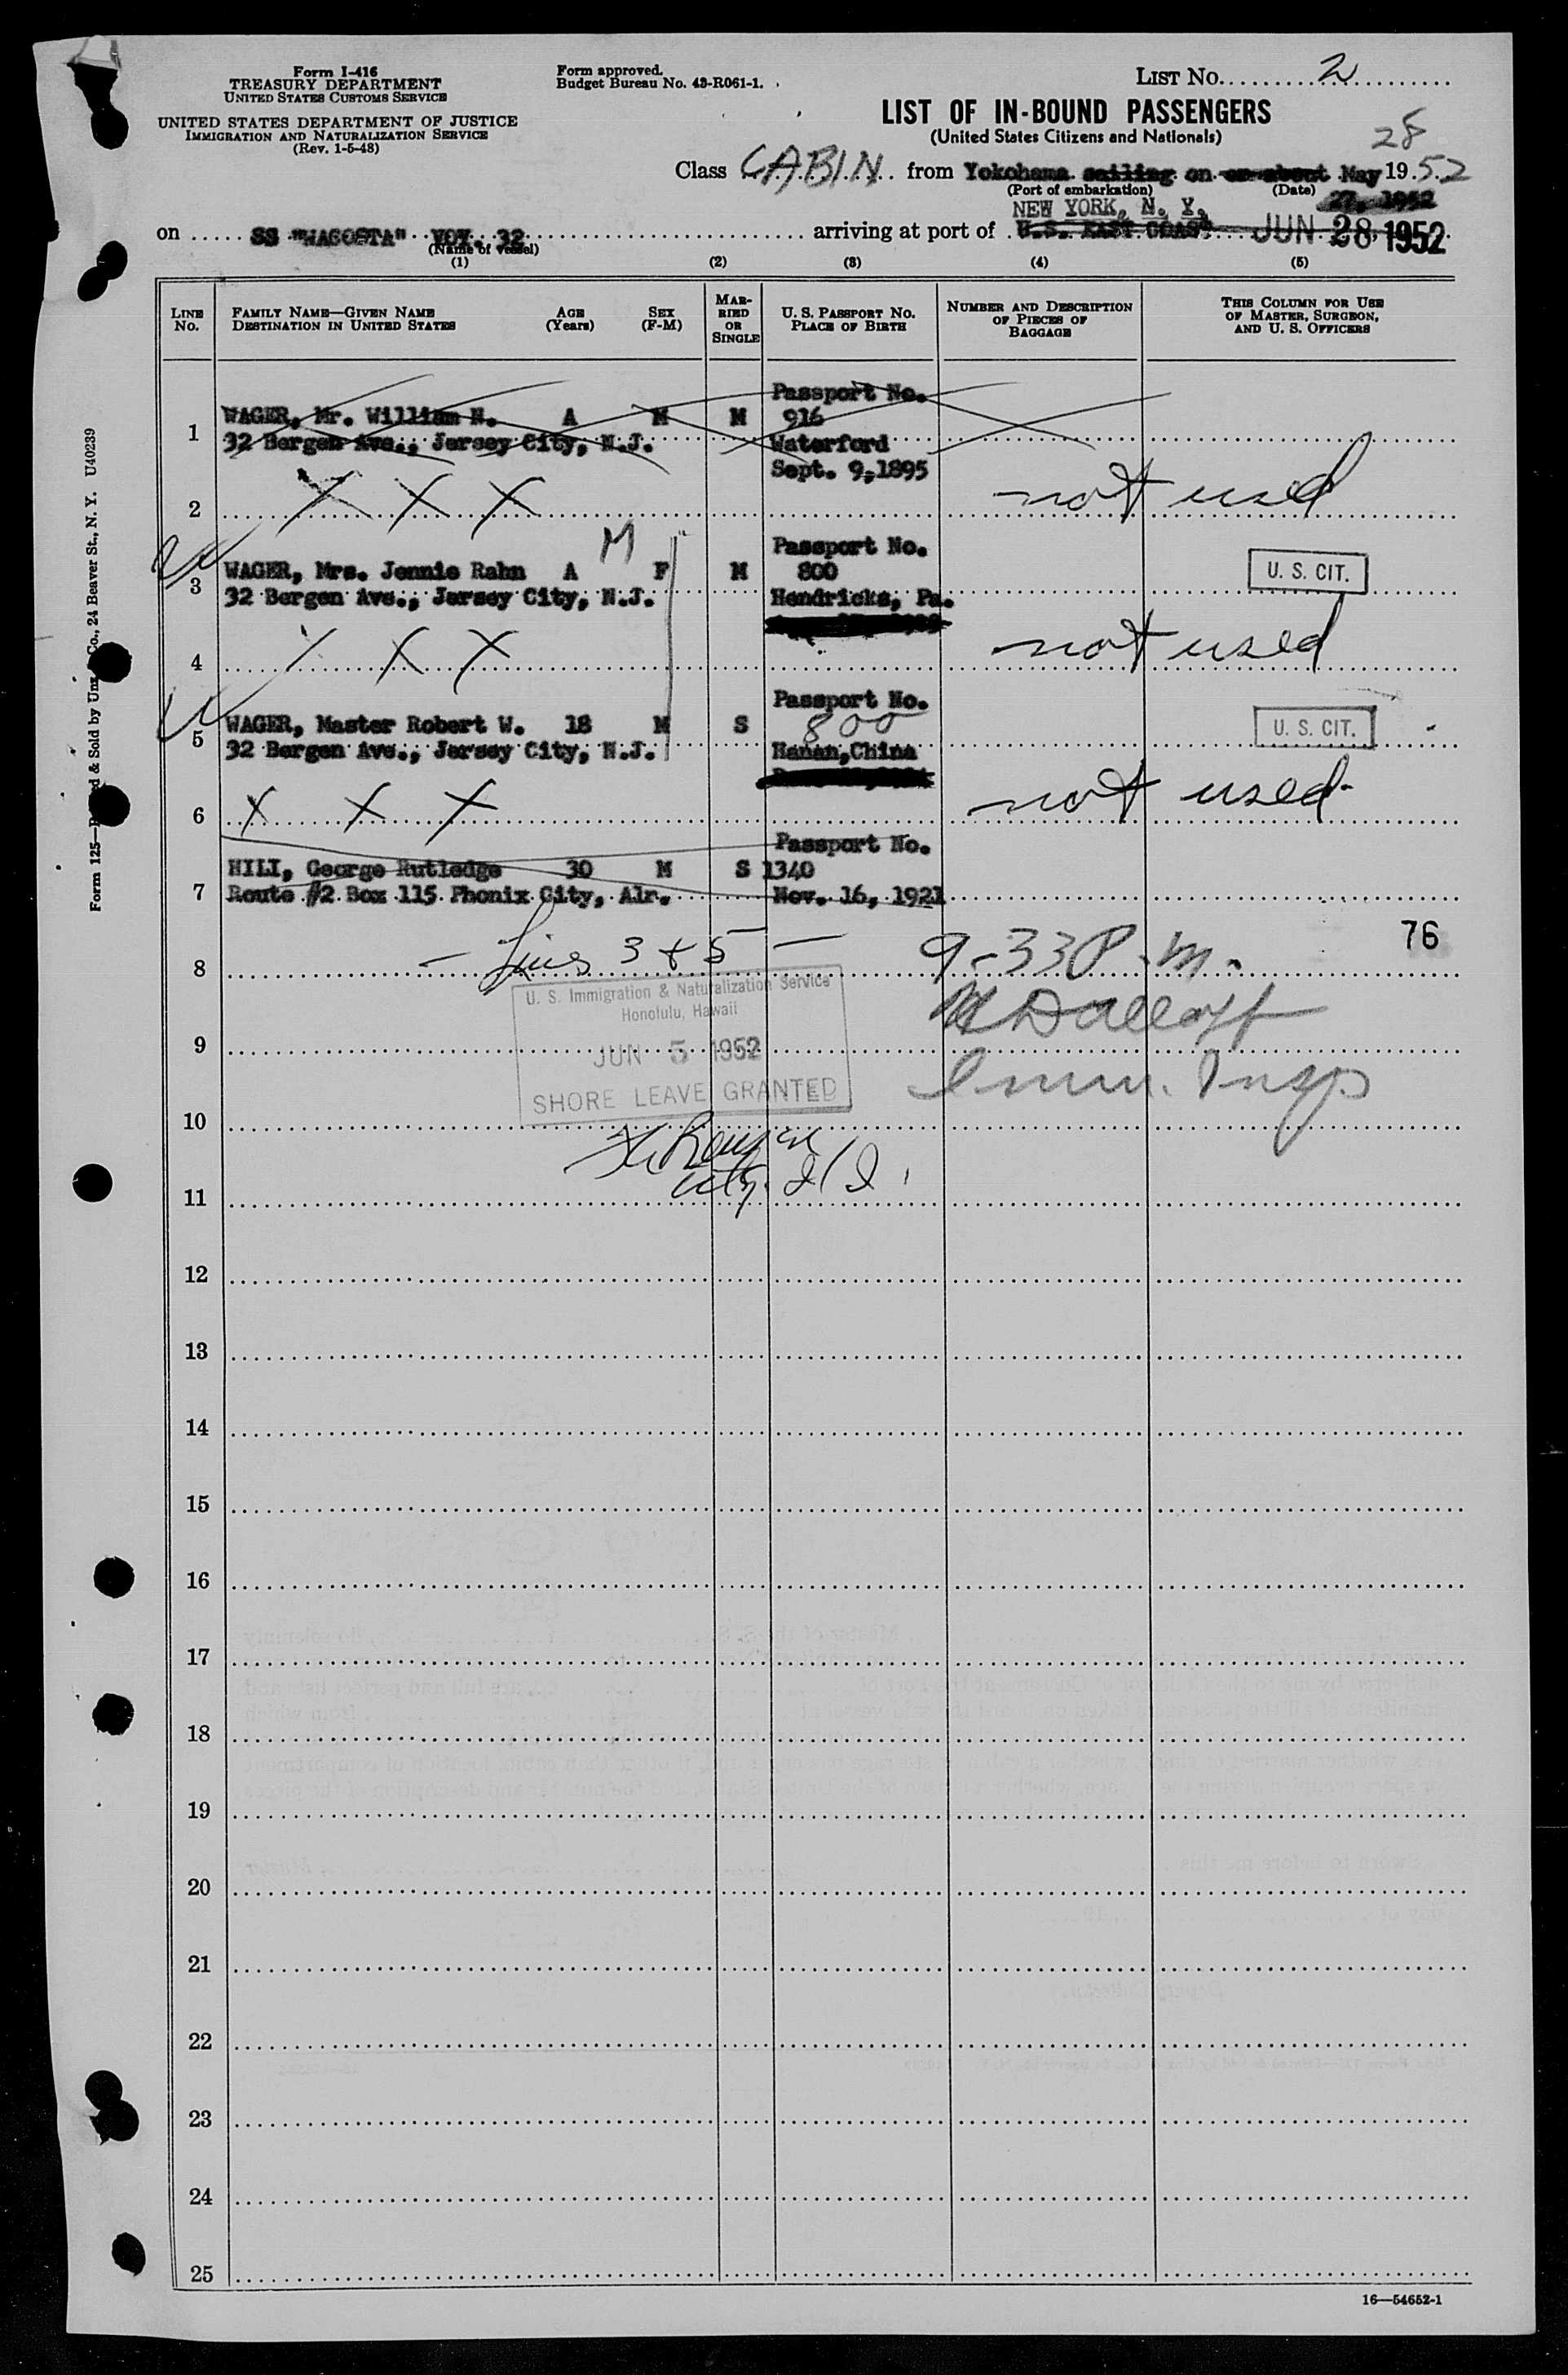 Form I-416
TREASURY DEPARTMENT
UNITED STATES CUSTOMS SERVICE
UNITED STATES DEPARTMENT OF JUSTICE
IMMIGRATION AND NATURALIZATION SERVICE
(Rev. 1-5-48)
Form approved.
Budget Bureau No. 43-R061-1.
LIST No. 2
LIST OF IN-BOUND PASSENGERS
(United States Citizens and Nationals)
28
Class CABIN from Yokohama sailing on or about May 1952
(Port of embarkation) (Date)
27, 1952
NEW YORK, N. Y.
on SS "WACOSTA" VOY. 32 arriving at port of U.S. EAST COAST JUN 28, 1952
(Name of vessel)
(1) (2) (3) (4) (5)
LINE No.
FAMILY NAME—GIVEN NAME AGE (Years) SEX (F-M)
DESTINATION IN UNITED STATES
MARRIED OR SINGLE
U. S. PASSPORT NO.
PLACE OF BIRTH
NUMBER AND DESCRIPTION OF PIECES OF BAGGAGE
THIS COLUMN FOR USE OF MASTER, SURGEON, AND U. S. OFFICERS
Passport No.
WAGER, Mr. William N. A M M 916
1 32 Bergen Ave., Jersey City, N.J. Waterford
Sept. 9, 1895
2 X X X not used
M
Passport No.
WAGER, Mrs. Jennie Rahn A F M 800 U. S. CIT.
3 32 Bergen Ave., Jersey City, N.J. Hendricks, Pa.
4 X X X not used
Passport No.
WAGER, Master Robert W. 18 M S 800 U. S. CIT.
5 32 Bergen Ave., Jersey City, N.J. Hanan, China
6 X X X not used
Passport No.
HILI, George Rutledge 30 M S 1340
7 Route #2 Box 115 Phonix City, Alr. Nov. 16, 1921
76
8 — Lines 3 & 5 — 9-33 P.m.
U. S. Immigration & Naturalization Service
Honolulu, Hawaii
9 JUN 5 1952
SHORE LEAVE GRANTED
Imm. Insp
10
11
12
13
14
15
16
17
18
19
20
21
22
23
24
25
16—54652-1
Form 125—Printed & Sold by Unz & Co., 24 Beaver St., N. Y. U40239